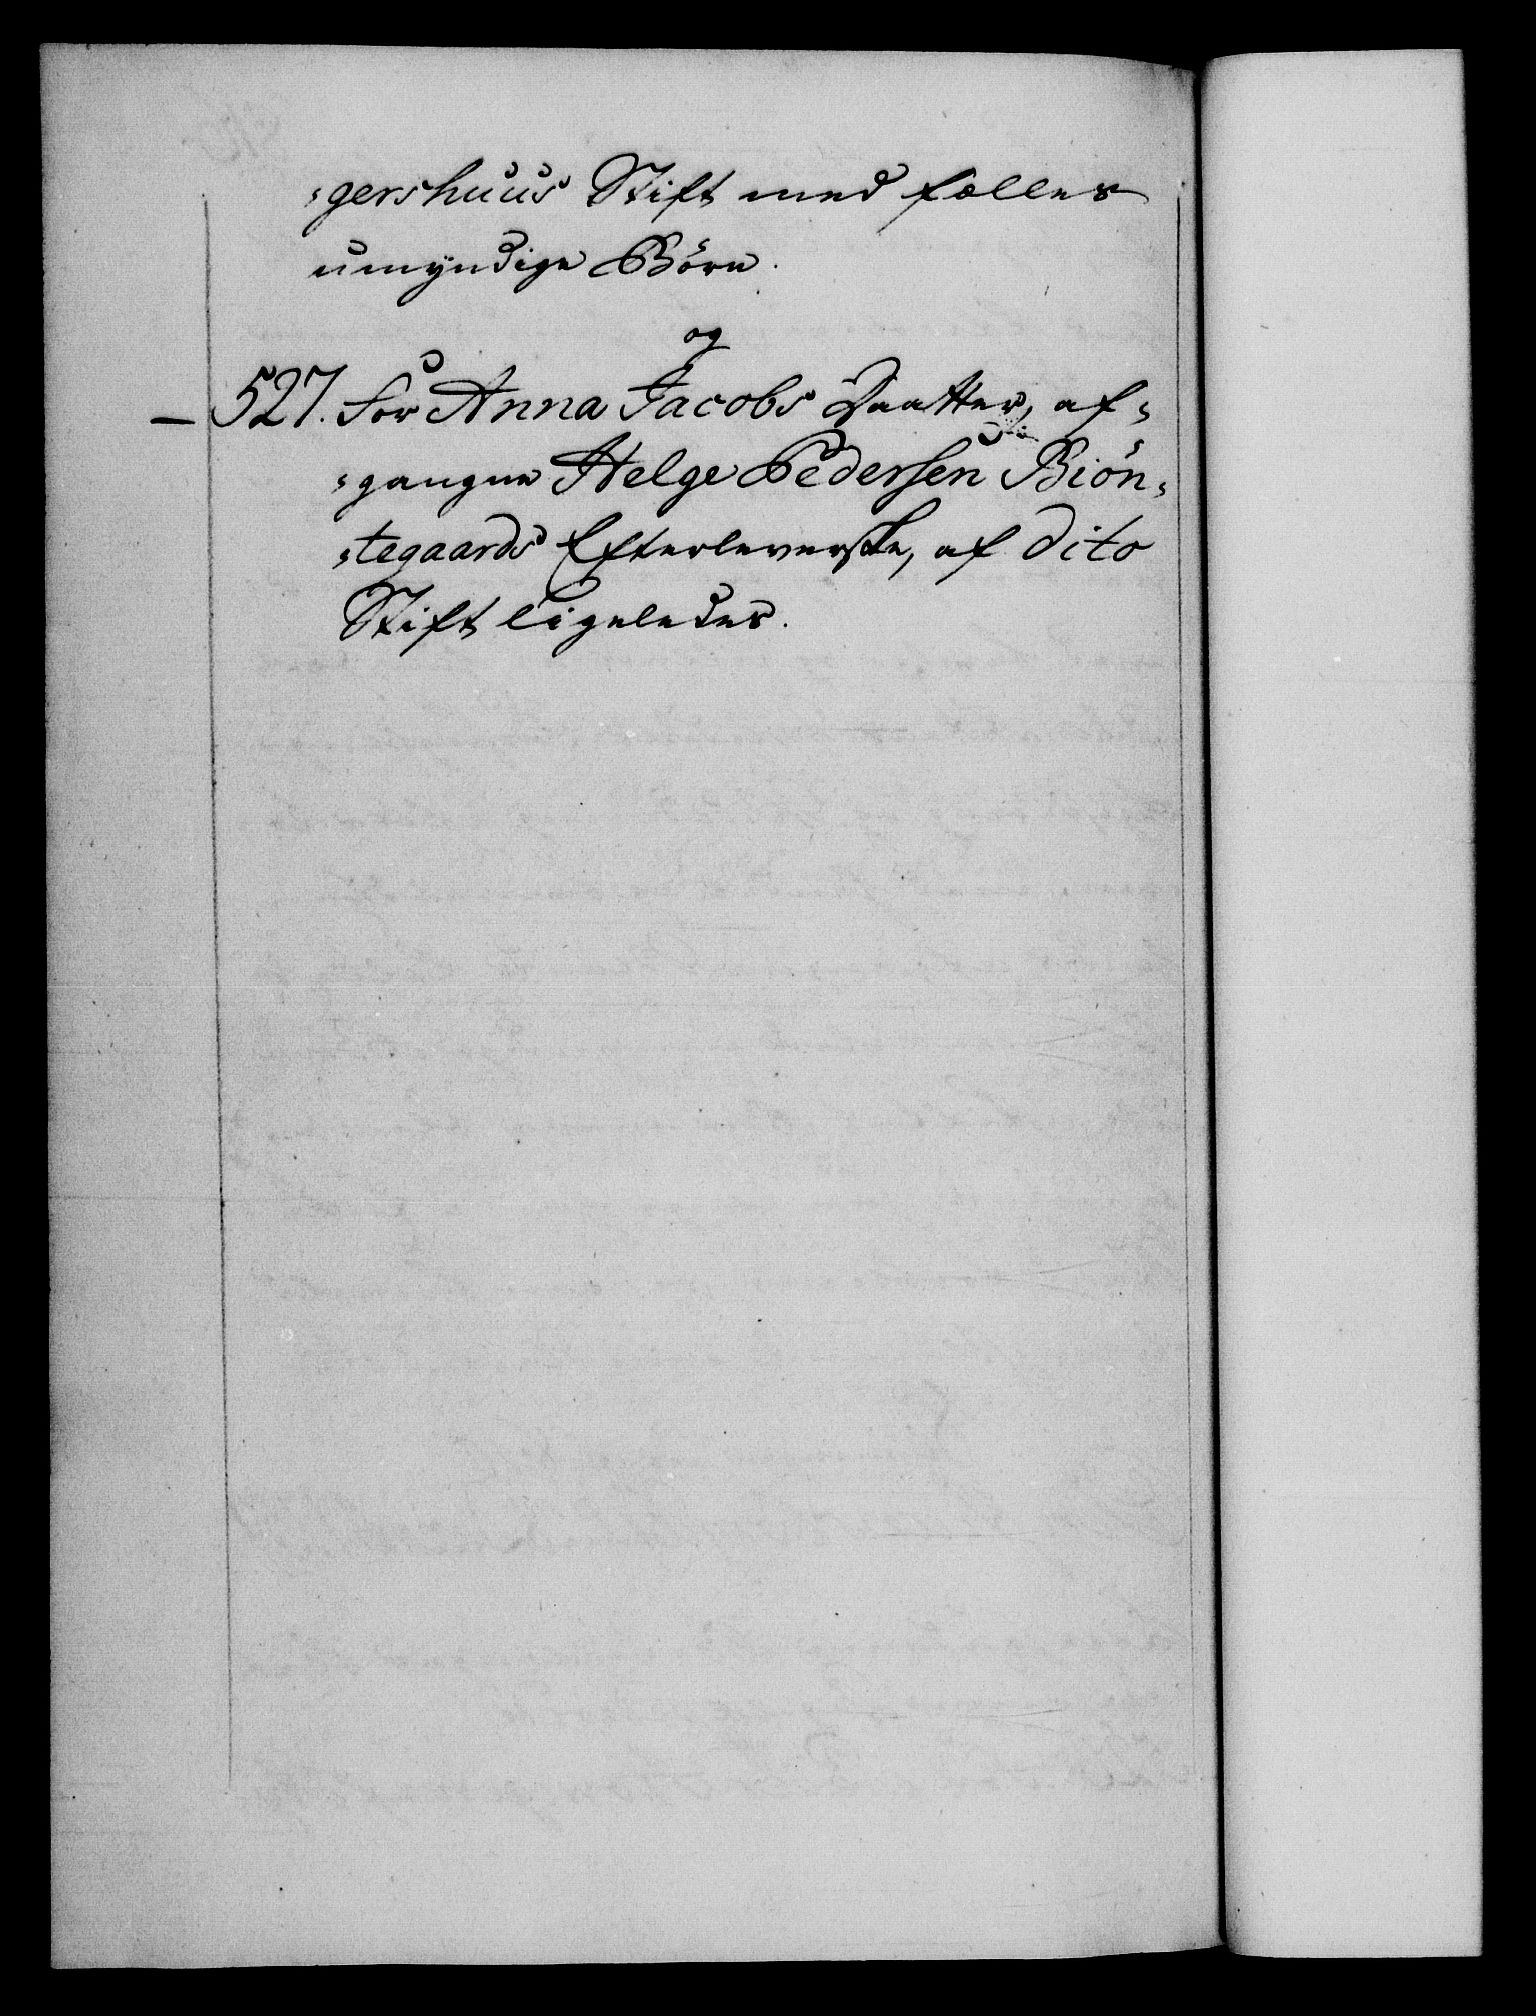 -gershuus Stift med fælles
umyndige Børn.
og
527. for Anna Jacobs Daatter, af-
-gangne Helge Pedersen Biön-
-tegaards Efterleverske, af dito
Stift ligeledes.